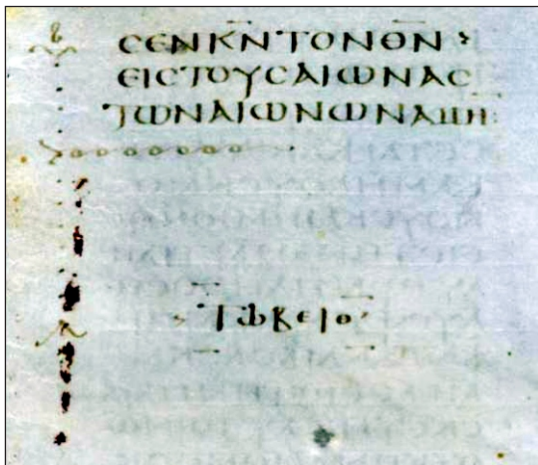 ϹΕΝΚ̅Ν̅ΤΟΝΘ̅Ν̅
ΕΙϹΤΟΥϹΑΙΩΝΑϹ
ΤΩΝΑΙΩΝΩΝΑΜΗ:
ΤΩΒΕΙΘ